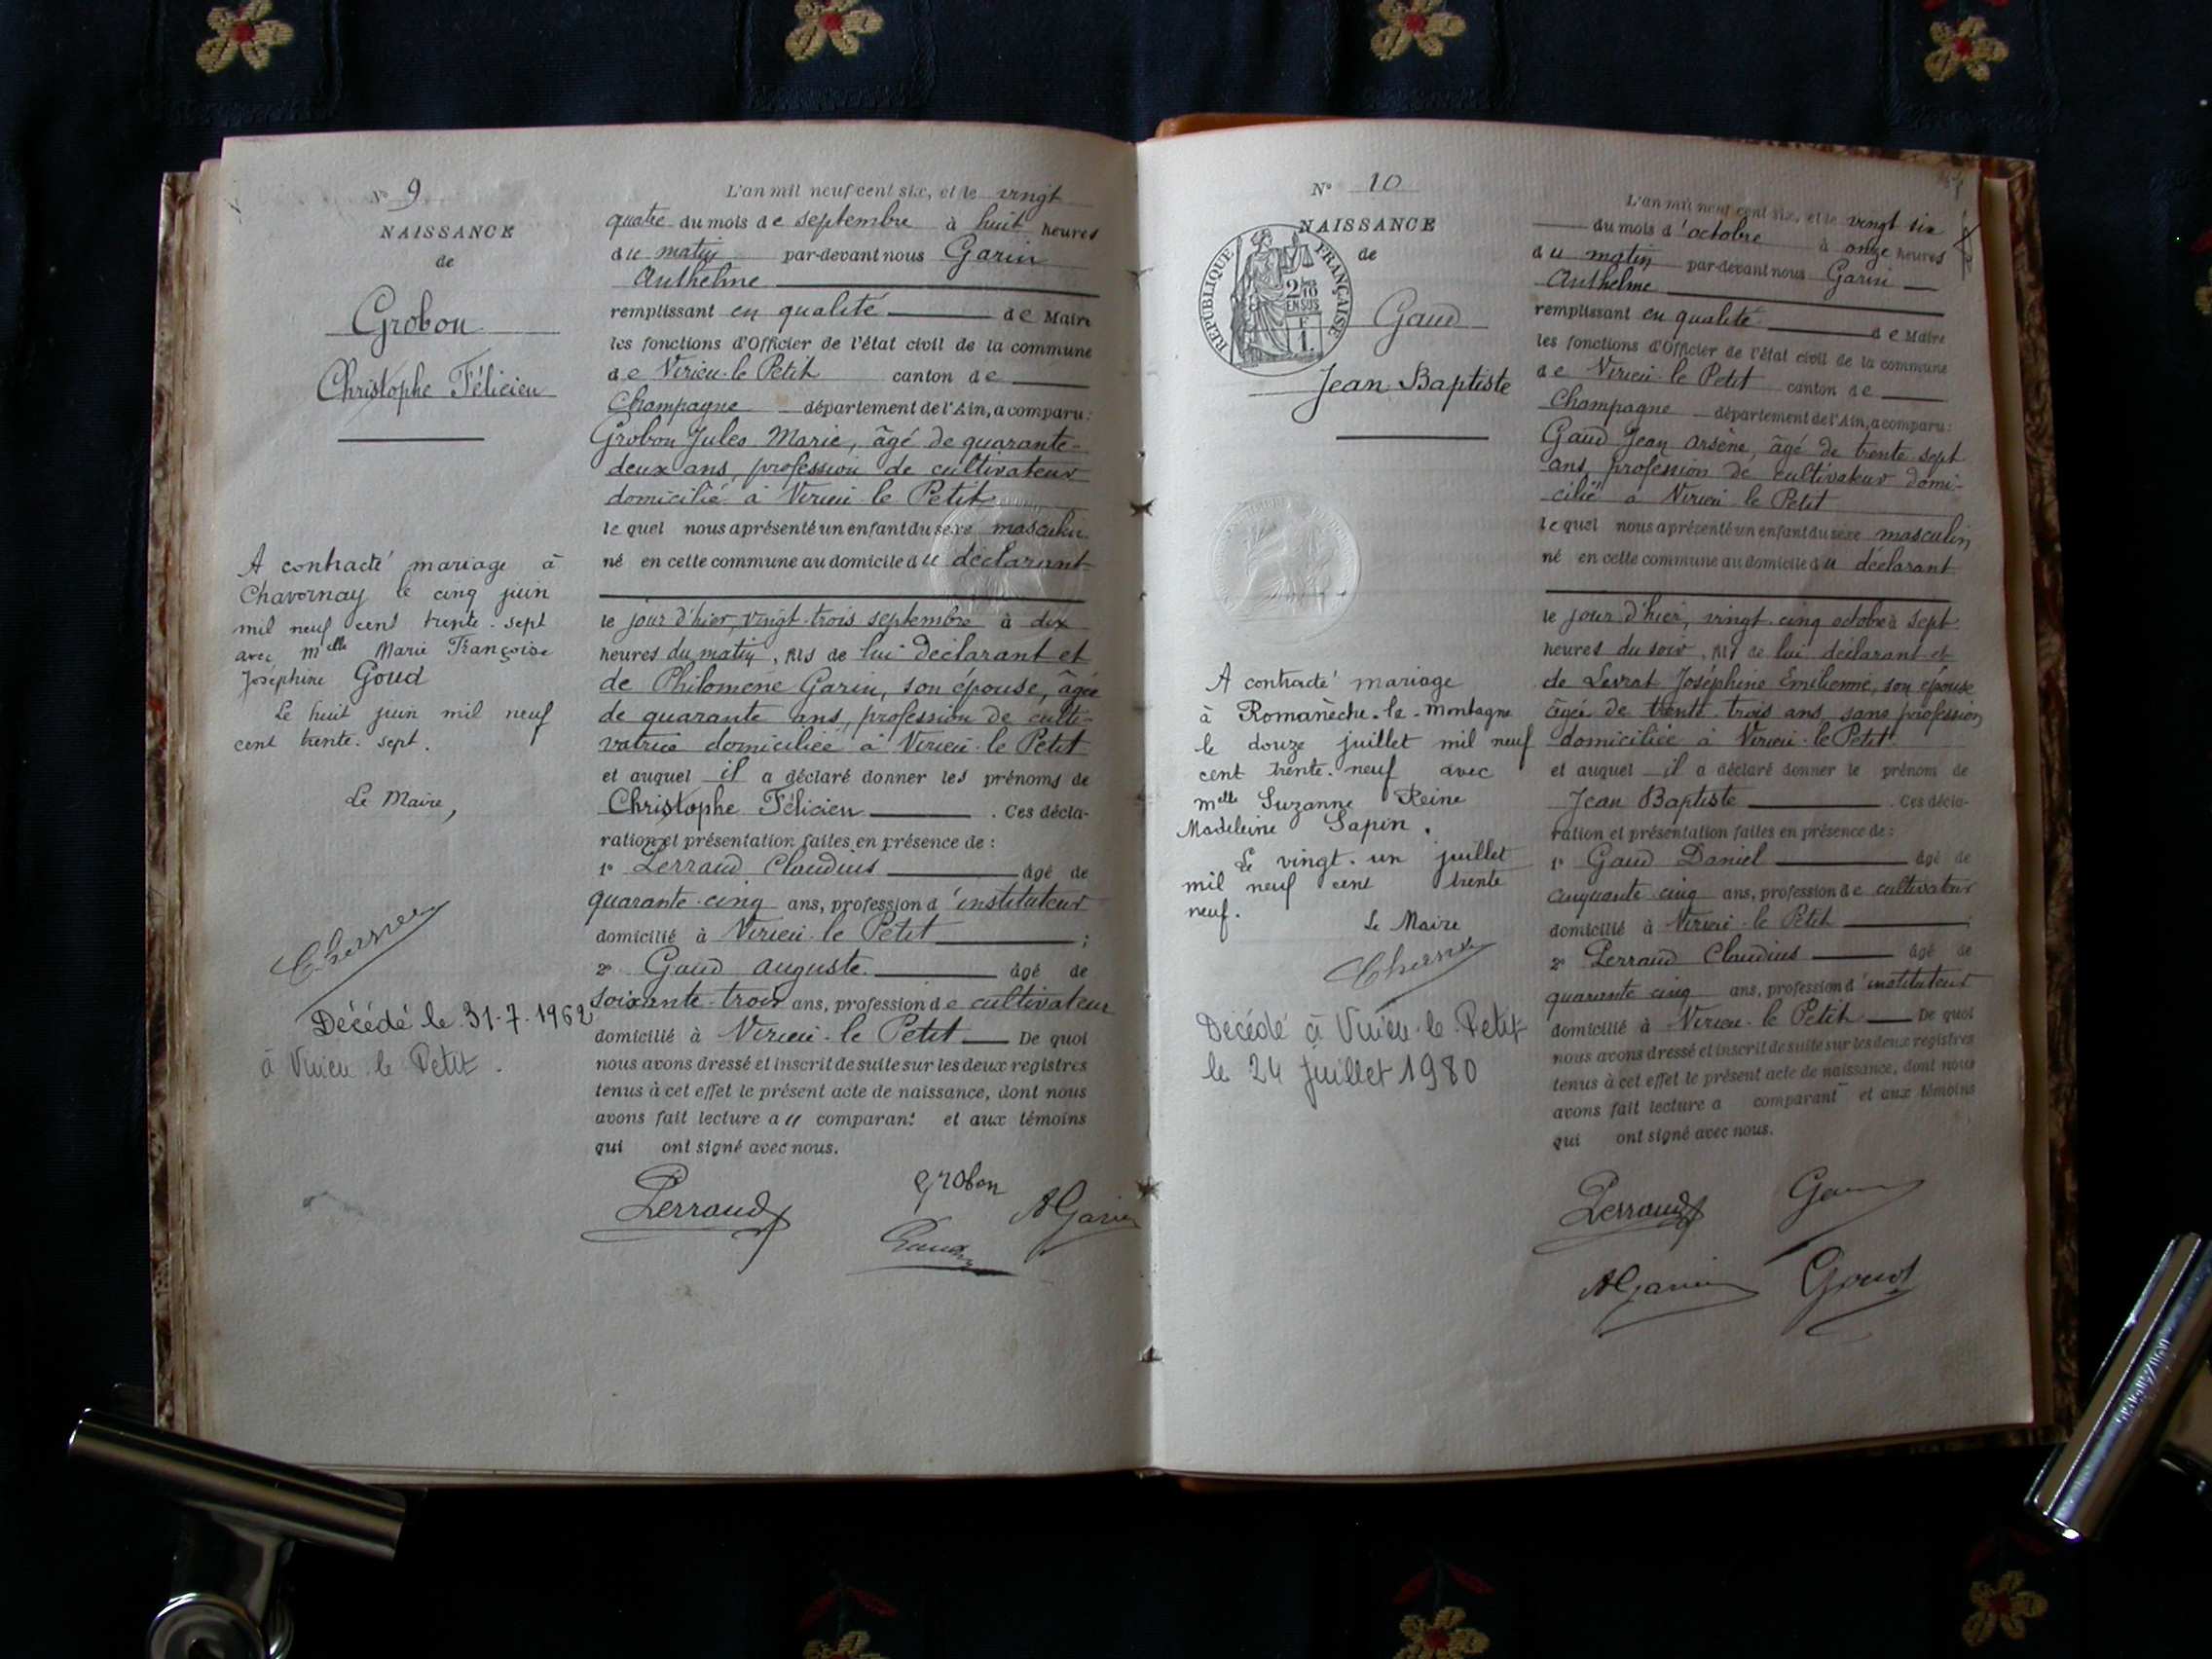 N° 9
NAISSANCE
de
Grobon
Christophe Félicien
A contracté mariage à
Chavornay le cinq juin
mil neuf cent trente-sept
avec Melle Marie Françoise
Joséphine Goud
Le huit juin mil neuf
cent trente-sept.
Le Maire,
Décédé le 31-7-1962
à Virieu le Petit.
L'an mil neuf cent six, et le vingt
quatre du mois de septembre à huit heures
du matin par-devant nous Garin
Anthelme
remplissant en qualité de Maire
les fonctions d'Officier de l'état civil de la commune
de Virieu-le Petit canton de
Champagne département de l'Ain, a comparu:
Grobon Jules Marie, âgé de quarante-
deux ans, profession de cultivateur
domicilié à Virieu le Petit
lequel nous a présenté un enfant du sexe masculin
né en cette commune au domicile du déclarant
le jour d'hier, vingt-trois septembre à dix
heures du matin, fils de lui déclarant et
de Philomène Garin, son épouse, âgée
de quarante ans, profession de culti-
vatrice domiciliée à Virieu-le Petit
et auquel il a déclaré donner les prénoms de
Christophe Félicien. Ces décla-
ration et présentation faites en présence de :
1° Perraud Claudius âgé de
quarante-cinq ans, profession d'instituteur
domicilié à Virieu-le Petit ;
2° Gaud Auguste âgé de
soixante-trois ans, profession de cultivateur
domicilié à Virieu-le Petit De quoi
nous avons dressé et inscrit de suite sur les deux registres
tenus à cet effet le présent acte de naissance, dont nous
avons fait lecture au comparant et aux témoins
qui ont signé avec nous.
Grobon
Perraud
AGarin
Gaud
N° 10
NAISSANCE
de
RÉPUBLIQUE FRANÇAISE
2/10
EN SUS
F
1.
Gaud
Jean Baptiste
A contracté mariage
à Romanèche-la-Montagne
le douze juillet mil neuf
cent trente-neuf avec
Melle Suzanne Reine
Madeleine Sapin.
Le vingt-un juillet
mil neuf cent trente
neuf.
Le Maire
Décédé à Virieu-le-Petit
le 24 Juillet 1980
L'an mil neuf cent six, et le vingt six
du mois d'octobre à onze heures
du matin par-devant nous Garin
Anthelme
remplissant en qualité de Maire
les fonctions d'Officier de l'état civil de la commune
de Virieu-le Petit canton de
Champagne département de l'Ain, a comparu:
Gaud Jean Arsène, âgé de trente sept
ans, profession de cultivateur domi-
cilié à Virieu le Petit
lequel nous a présenté un enfant du sexe masculin
né en cette commune au domicile du déclarant
le jour d'hier, vingt-cinq octobre à sept
heures du soir, fils de lui déclarant et
de Levrat Joséphine Emilienne, son épouse
âgée de trente-trois ans sans profession
domiciliée à Virieu-le Petit
et auquel il a déclaré donner le prénom de
Jean Baptiste. Ces décla-
ration et présentation faites en présence de :
1° Gaud Daniel âgé de
cinquante-cinq ans, profession de cultivateur
domicilié à Virieu-le Petit ;
2° Perraud Claudius âgé de
quarante cinq ans, profession d'instituteur
domicilié à Virieu-le Petit De quoi
nous avons dressé et inscrit de suite sur les deux registres
tenus à cet effet le présent acte de naissance, dont nous
avons fait lecture a comparant et aux témoins
qui ont signé avec nous.
Perraud
AGarin
Goud